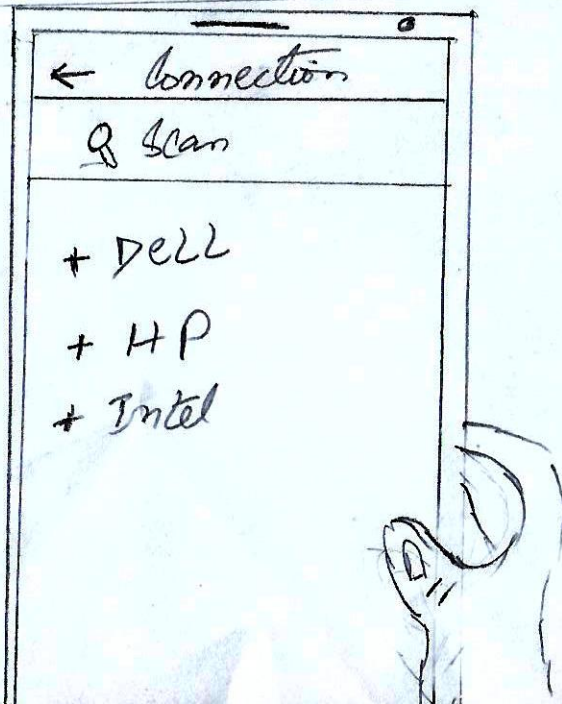 ← Connection
Scan
+ Dell
+ HP
+ Intel